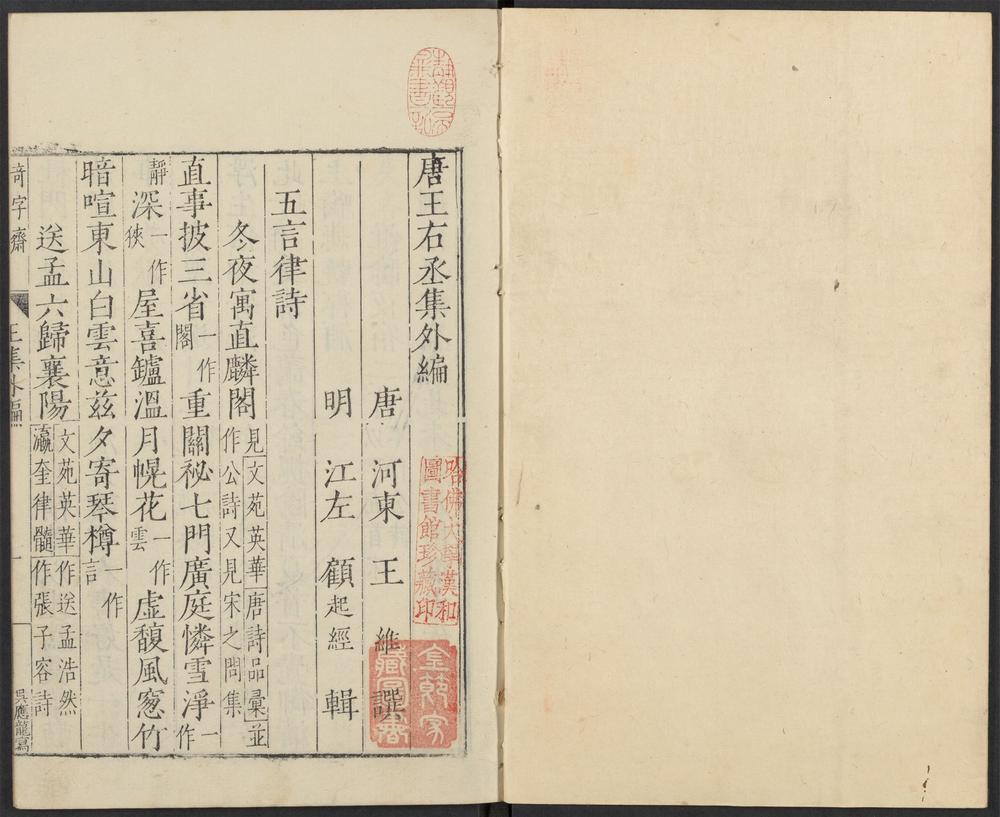 唐王右丞集外編
唐 河東 王 維 譔
明 江左 顧 起經 輯
五言律詩
冬夜寓直麟閣 見文苑英華唐詩品彙並作公詩又見宋之問集
直事披三省 一作閣 重關祕七門廣庭憐雪淨 一作
靜 深 一作狹 屋喜鑪溫月幌花 一作雲 虛馥風窻竹
暗喧東山白雲意茲夕寄琴樽 一作言
送孟六歸襄陽 文苑英華作送孟浩然瀛奎律髓作張子容詩
奇字齋
王集外編
一
吳應龍寫
哈佛大學漢和圖書館珍藏印